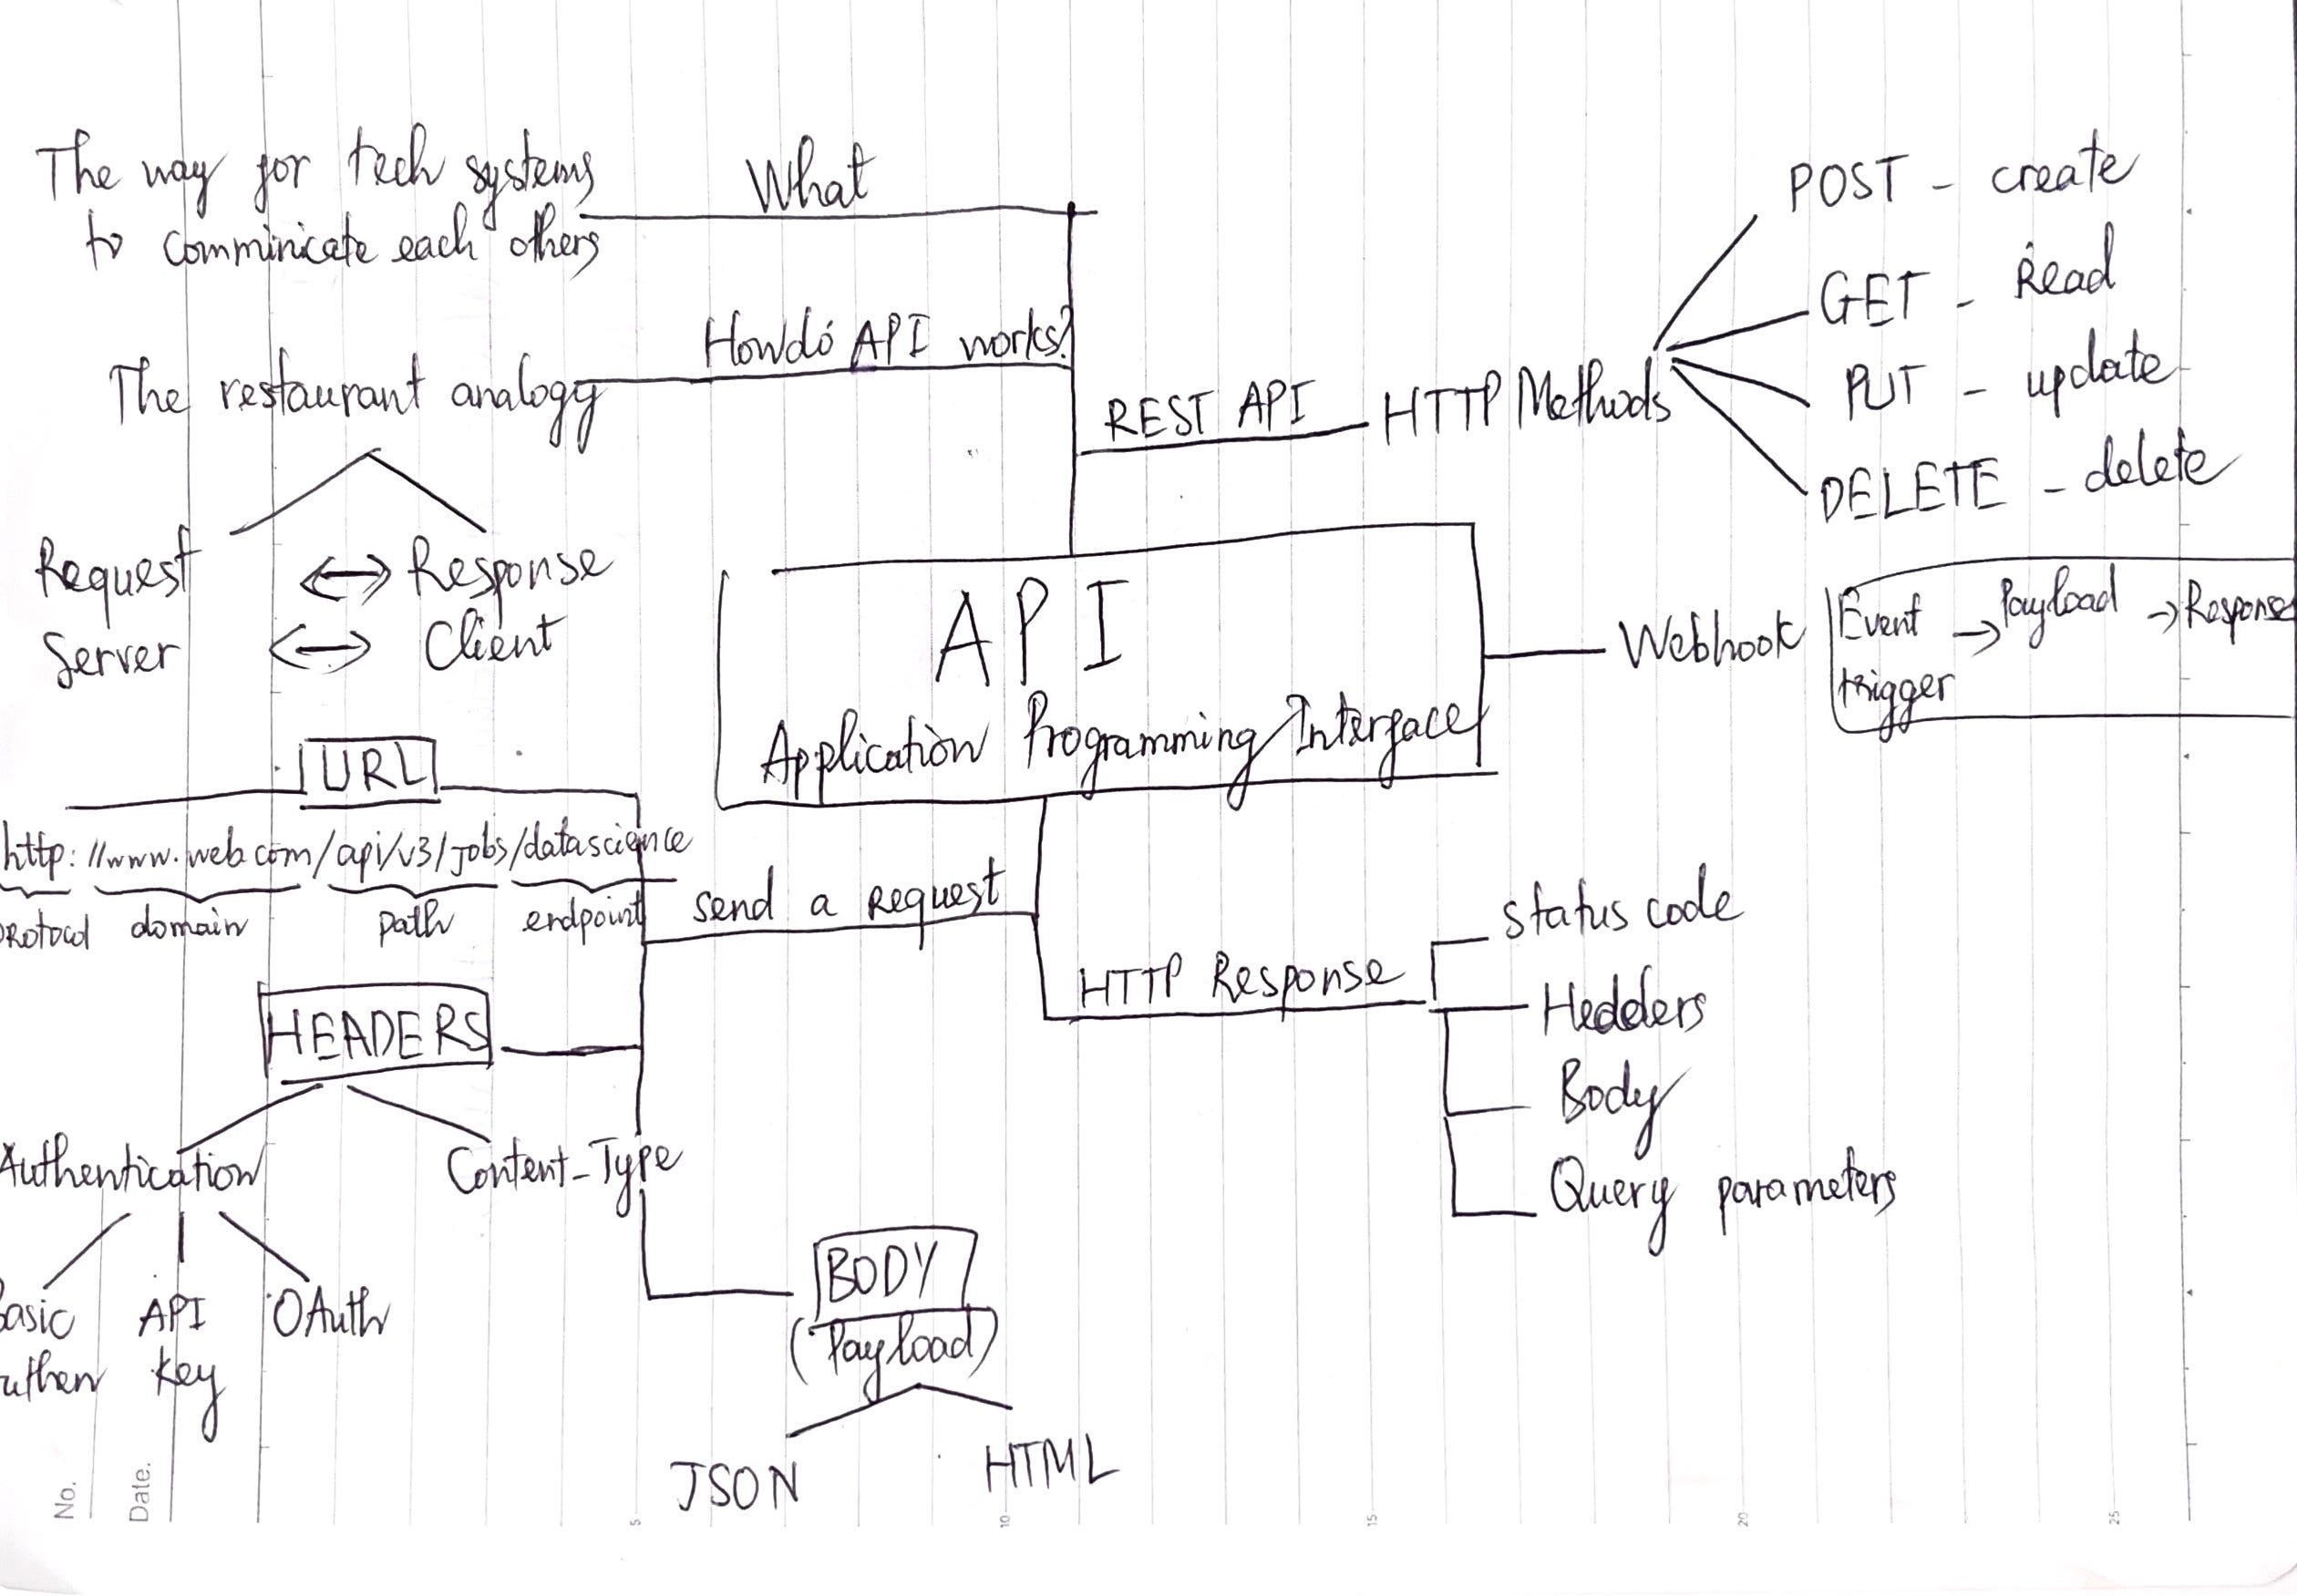 The way for tech systems
to comminicate each others
What
How do API works?
The restaurant analogy
Request <-> Response
Server <-> Client
REST API
HTTP Methods
POST - create
GET - Read
PUT - update
DELETE - delete
API
Application Programming Interface
Webhook
Event trigger -> Payload -> Response
URL
http://www.web.com/api/v3/jobs/datascience
protocol domain path endpoint
send a request
HEADERS
Authentication
Content-Type
Basic Authen
API Key
OAuth
BODY
(Payload)
JSON
HTML
HTTP Response
status code
Hedders
Body
Query parameters
No.
Date.
5 10 15 20 25